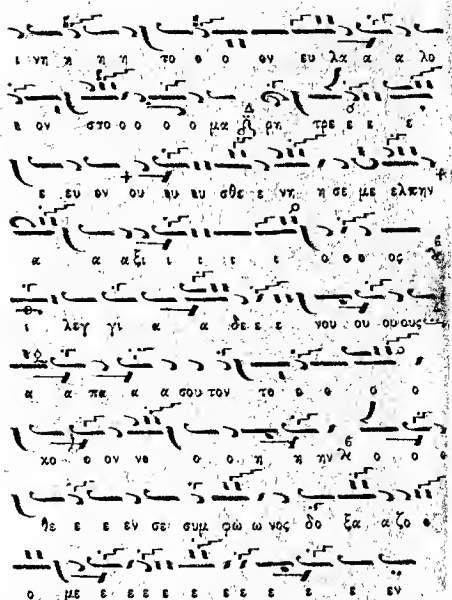 ι νη η η η το ο ο ον ευ λα α α α λο
ον στο ο ο ο ο ο μα Δ ρη τρε ε ε ε
ε ευ ον ου ου ου σθε ε νη η σε με ελπην
α α αξι ι ι ι ι ο ο ο ος
ι λεγ γι α α δε ε ε νου ου ου ους
α α πα α α σου τον το ο ο ο ο
κο ο ον νο ο ο η η ην ο ο ο
θε ε ε εν σε συμ φω ω νος δο ξα α ζο ο
ο με ε ε ε ε ε ε ε ε ε ε εν